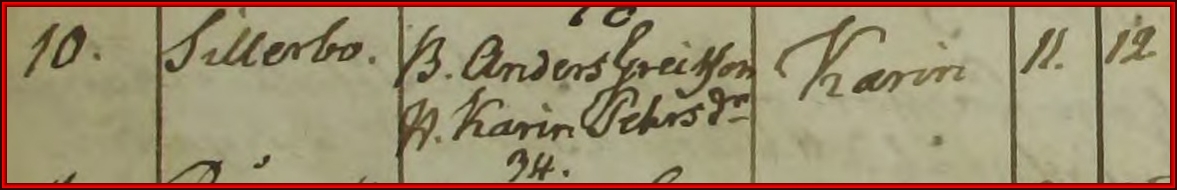 10. Sillerbo. B. Anders Greitson Karin 11. 12
H. Karin Pehrs dr
34.